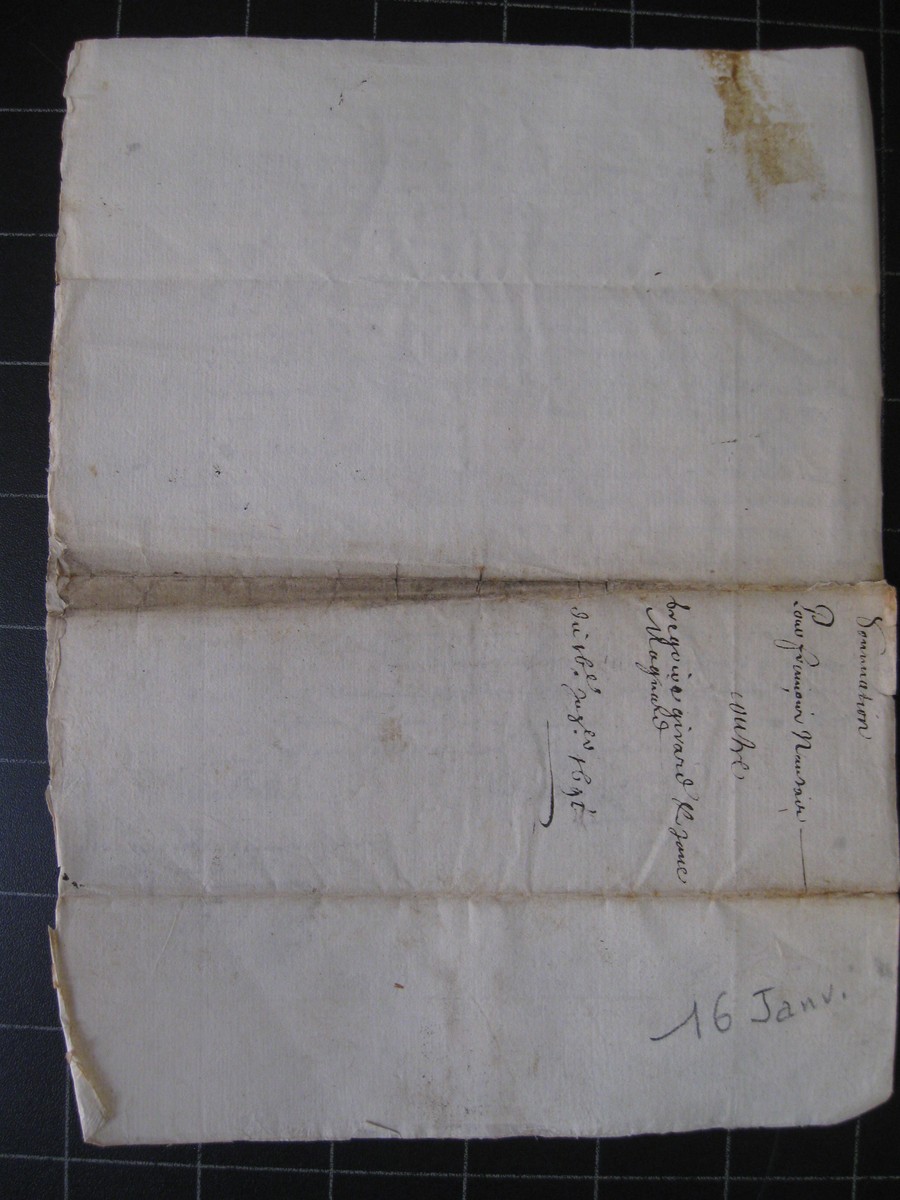 Sommation
Pour françois Naudain
contre
gregoire girard & Jane
Magnard
du 16e
16 Janv.